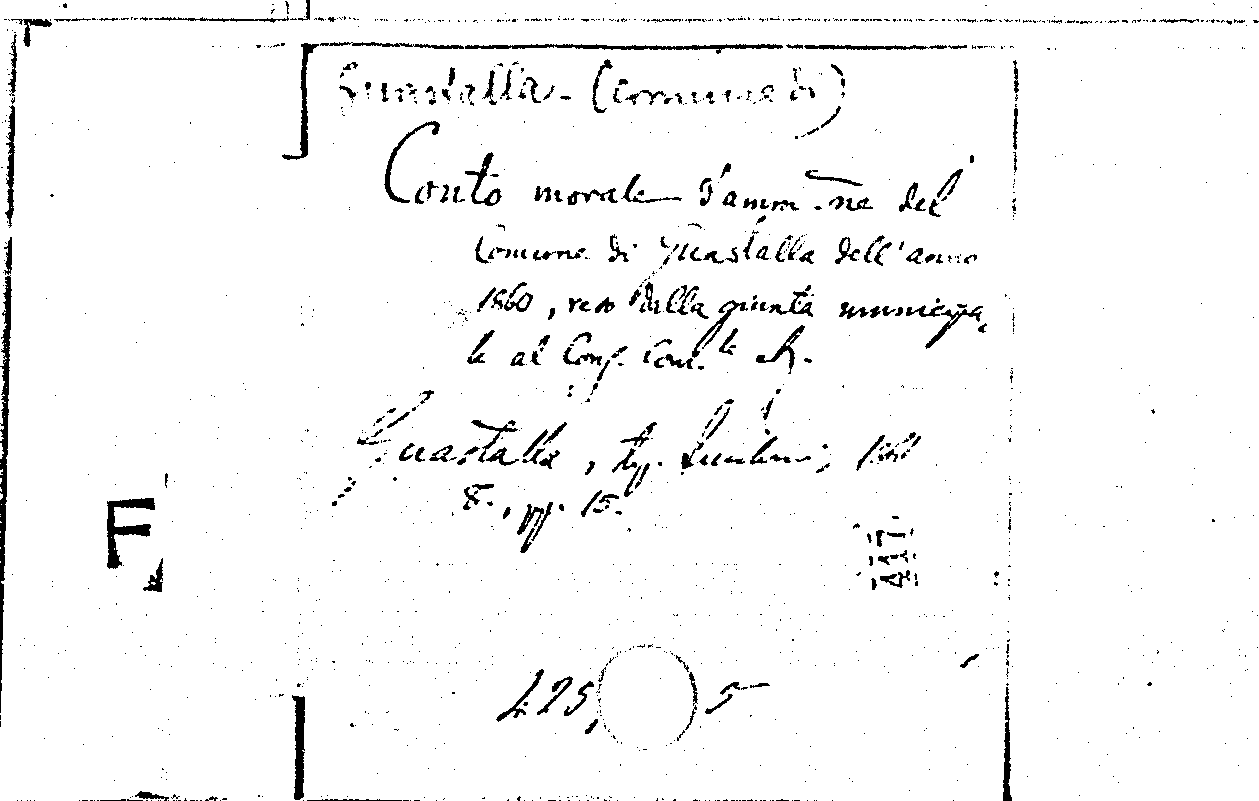 Guastalla - (Comune di)
Conto morale d'amm-ne del
Comune di Guastalla dell'anno
1860, reso dalla giunta municipa-
le al Cons. Com.le
Guastalla, typ. Lucchini, 1861
8°., pp. 15.
F
425, 5